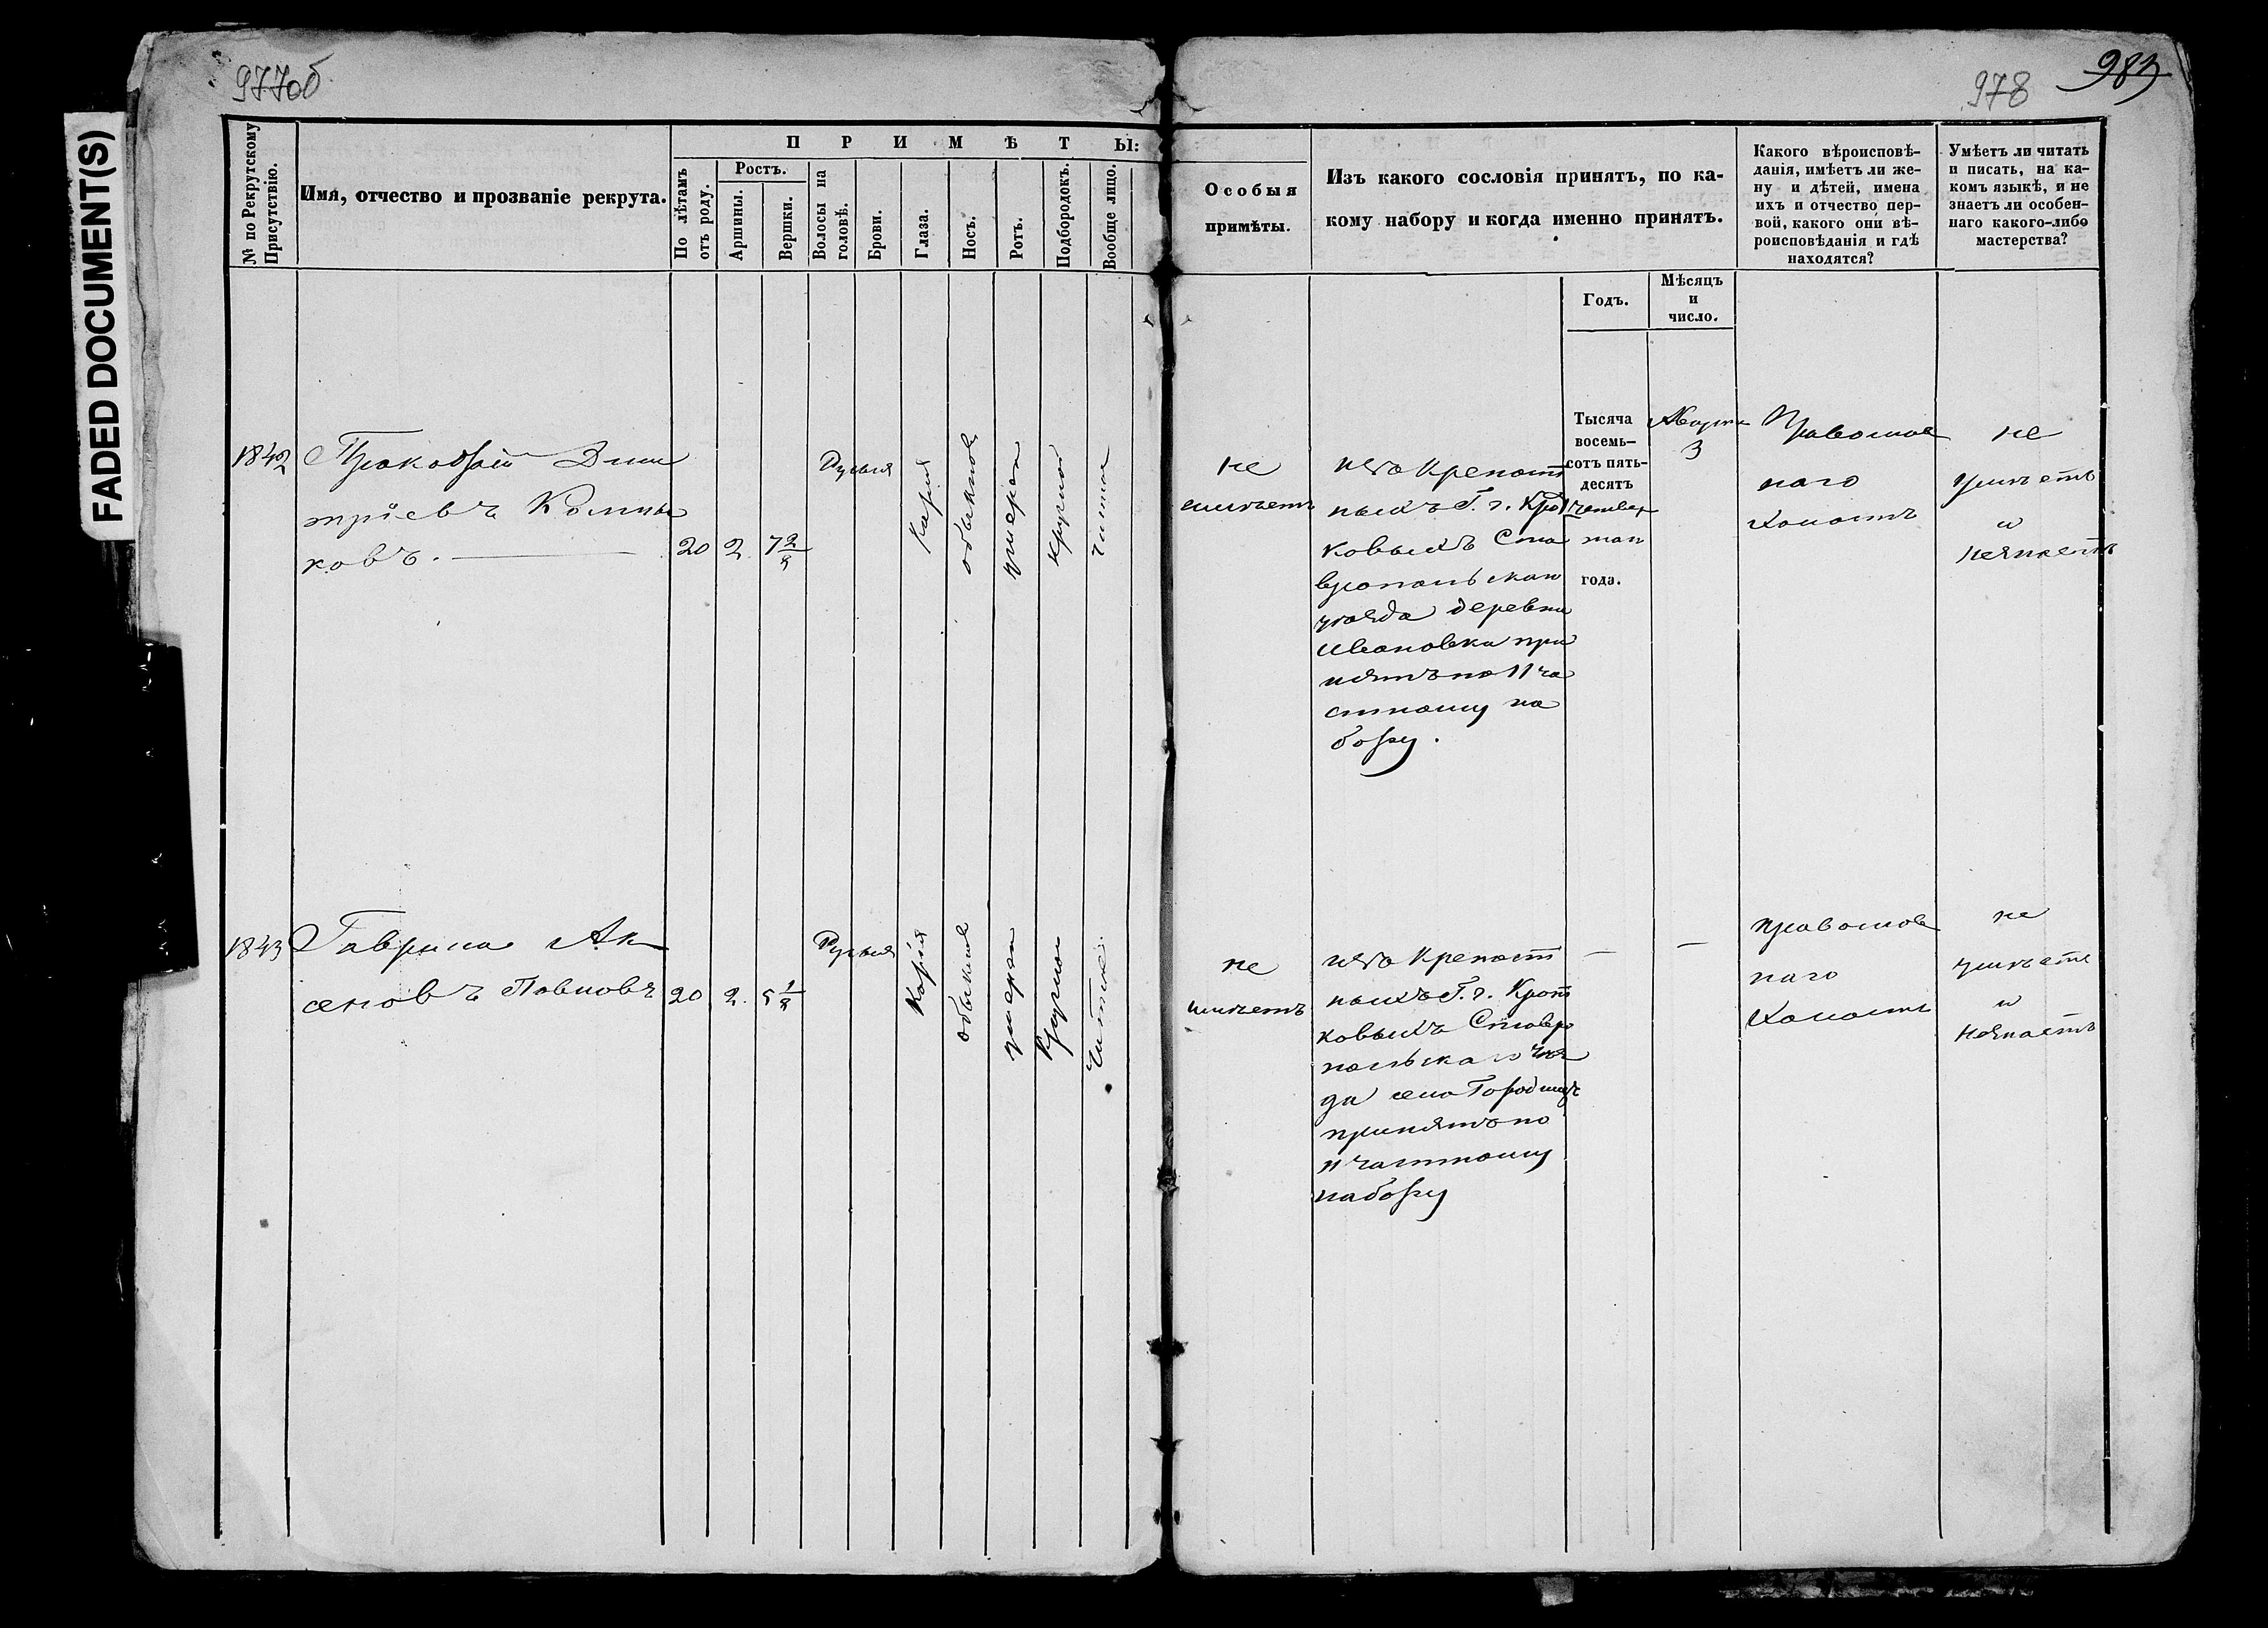 FADED DOCUMENT(S)
977об
978
983
№ по Рекрутскому Присутствію.
Имя, отчество и прозваніе рекрута.
ПРИМѢТЫ:
По лѣтамъ отъ роду.
Ростъ.
Аршины.
Вершки.
Волосы на головѣ.
Брови.
Глаза.
Носъ.
Ротъ.
Подбородокъ.
Вообще лицо.
Особыя
примѣты.
Изъ какого сословія принятъ, по ка-
кому набору и когда именно принятъ.
Годъ.
Мѣсяцъ
и
число.
Какого вѣроисповѣ-
данія, имѣетъ ли же-
ну и дѣтей, имена
ихъ и отчество пер-
вой, какого они вѣ-
роисповѣданія и гдѣ
находятся?
Умѣетъ ли читать
и писать, на ка-
комъ языкѣ, и не
знаетъ ли особен-
наго какого-либо
мастерства?
1842
Прокофій Дми
тріевъ
ковъ.
20
2
7 2/8
Русыя
Карія
обыкнов
умерен
круглой
чистое
не
имѣетъ
изъ крепост
ныхъ Г. г. Кро
ковыхъ Ста
вропольскаго
уѣзда деревни
Ивановки при
нятъ по 11 ча
стному на
бору.
Тысяча
восемь-
сотъ пять-
десятъ
четвер
таго
года.
Августа
3
Православ
наго
Холостъ
не
умѣетъ
и
незнаетъ
1843
Гаврила Ак
сеновъ Павловъ
20
2.
5 1/8
Русыя
Карія
обыкнов
умерен
Круглой
Чистое.
не
имѣетъ
изъ крепост
ныхъ Г. г. Крот
ковыхъ Ставро
польскаго уѣз
да села Городищъ
принятъ по
11 частному
набору
—
—
Православ
наго
Холостъ
не
умѣетъ
и
незнаетъ